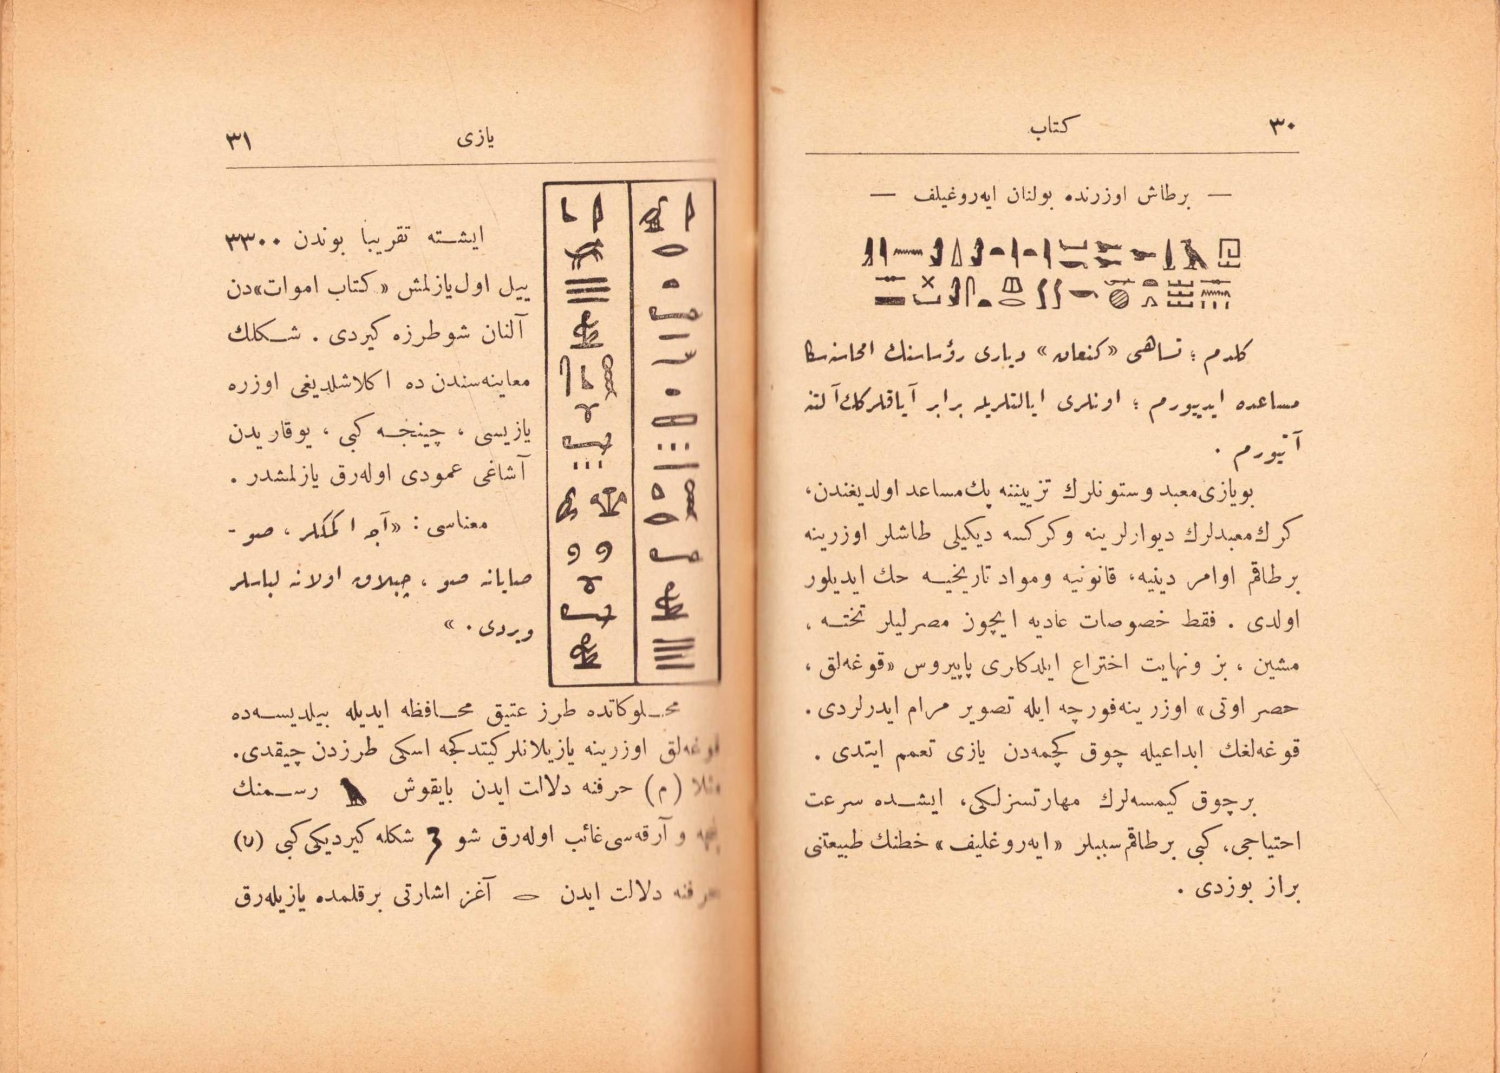 ٣٠
كتاب
— برطاش اوزرنده بولنان ايه‌روغيلف —
كلدم ؛ تساهى «كنعان» ديارى رؤساسنك امحاسنه سكا
مساعده ايدييورم ؛ اونلرى ايالتلريله برابر آياقلركك آلتنه
آتيورم .
بويازى معبد وستونلرك تزييننه پك مساعد اولديغندن،
كرك معبدلرك ديوارلرينه وكركسه ديكيلى طاشلر اوزرينه
برطاقم اوامر دينيه، قانونيه ومواد تاريخيه حك ايديلور
اولدى . فقط خصوصات عاديه ايچون مصرليلر تخته ،
مشين ، بز ونهايت اختراع ايلدكارى پاپيروس «قوغه‌لق ،
حصر اوتى» اوزرينه فورچه ايله تصوير مرام ايدرلردى .
قوغه‌لغك ابداعيله چوق كچمه‌دن يازى تعمم ايتدى .
برچوق كيمسه‌لرك مهارتسزلكى، ايشده سرعت
احتياجى، كبى برطاقم سببلر «ايه‌روغليف» خطنك طبيعتنى
براز بوزدى .
يازى
٣١
ايشته تقريبا بوندن ٣٣٠٠
ييل اول يازلمش «كتاب اموات» دن
آلنان شو طرزه كيردى . شكلك
معاينه‌سندن ده ا كلاشلديغى اوزره
يازيسى ، چينجه كبى ، يوقاريدن
آشاغى عمودى اوله‌رق يازلمشدر .
معناسى : «آجه ا كمكلر ، صو -
صايانه صو ، چبلاق اولانه لباسلر
ويردى . »
محلوكاتده طرز عتيق محافظه ايديله بيلديسه‌ده
قوغه‌لق اوزرينه يازيلانلر كيتدكجه اسكى طرزدن چيقدى.
مثلا (م) حرفنه دلالت ايدن بايقوش رسمنك
و آرقه‌سى غائب اوله‌رق شو شكله كيرديكى كبى (ر)
حرفنه دلالت ايدن آغز اشارتى برقلمده يازيله‌رق